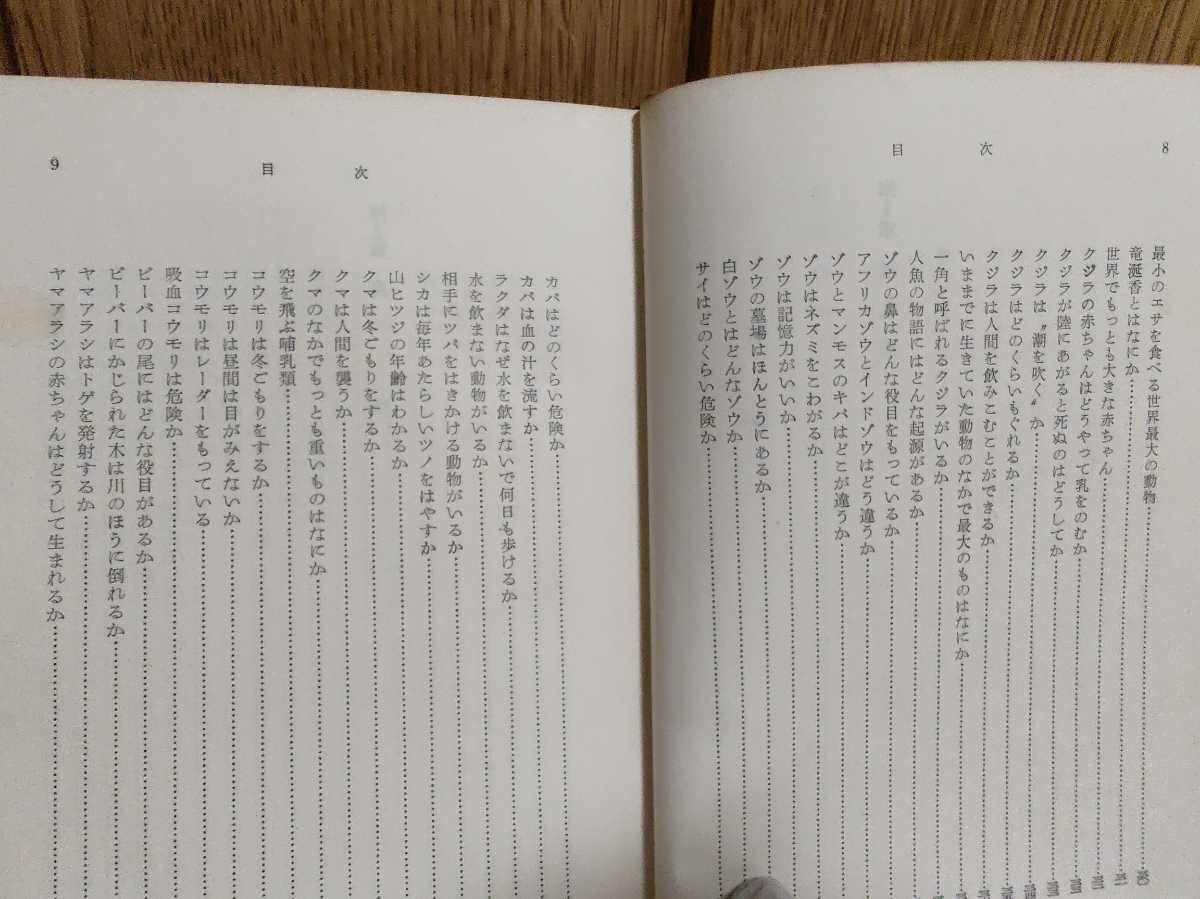 8
目次
最小のエサを食べる世界最大の動物
竜涎香とはなにか
世界でもっとも大きな赤ちゃん
クジラの赤ちゃんはどうやって乳をのむか
クジラが陸にあがると死ぬのはどうしてか
クジラは〝潮を吹く〟か
クジラはどのくらいもぐれるか
クジラは人間を飲みこむことができるか
いままでに生きていた動物のなかで最大のものはなにか
一角と呼ばれるクジラがいるか
人魚の物語にはどんな起源があるか
ゾウの鼻はどんな役目をもっているか
アフリカゾウとインドゾウはどう違うか
ゾウとマンモスのキバはどこが違うか
ゾウはネズミをこわがるか
ゾウは記憶力がいいか
ゾウの墓場はほんとうにあるか
白ゾウとはどんなゾウか
サイはどのくらい危険か
目次
9
カバはどのくらい危険か
カバは血の汗を流すか
ラクダはなぜ水を飲まないで何日も歩けるか
水を飲まない動物がいるか
相手にツバをはきかける動物がいるか
シカは毎年あたらしいツノをはやすか
山ヒツジの年齢はわかるか
クマは冬ごもりをするか
クマは人間を襲うか
クマのなかでもっとも重いものはなにか
空を飛ぶ哺乳類
コウモリは冬ごもりをするか
コウモリは昼間は目がみえないか
コウモリはレーダーをもっている
吸血コウモリは危険か
ビーバーの尾にはどんな役目があるか
ビーバーにかじられた木は川のほうに倒れるか
ヤマアラシはトゲを発射するか
ヤマアラシの赤ちゃんはどうして生まれるか